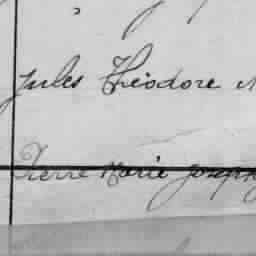 Jules Théodore
Pierre Marie Joseph